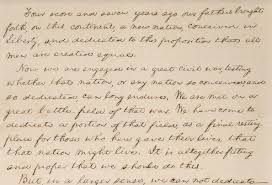 Four score and seven years ago our fathers brought
forth, on this continent, a new nation, conceived in
Liberty, and dedicated to the proposition that all
men are created equal.
Now we are engaged in a great civil war, testing
whether that nation, or any nation so conceived and
so dedicated, can long endure. We are met on a
great battle field of that war. We have come to
dedicate a portion of that field, as a final resting
place for those who here gave their lives, that
that nation might live. It is altogether fitting
and proper that we should do this.
But, in a larger sense, we can not dedicate